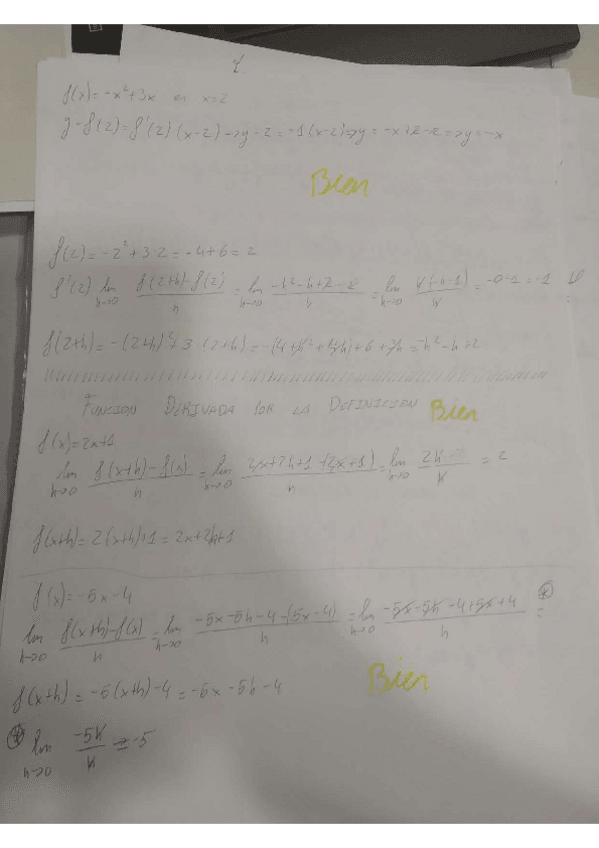 f(x) = -x² + 3x en x=2
y - f(2) = f'(2) (x-2) → y - 2 = -1(x-2) ⇒ y = -x+2-2 ⇒ y = -x
Bien
f(2) = -2² + 3·2 = -4 + 6 = 2
f'(2) lim h→0 f(2+h) - f(2) / h = lim h→0 -h² - h + 2 - 2 / h = lim h→0 h(-h-1) / h = -0-1 = -1
f(2+h) = -(2+h)² + 3·(2+h) = -(4+h²+4h) + 6 + 3h = -h² - h + 2
FUNCION DERIVADA POR LA DEFINICION Bien
f(x) = 2x+1
lim h→0 f(x+h) - f(x) / h = lim h→0 2x+2h+1-(2x+1) / h = lim h→0 2h / h = 2
f(x+h) = 2(x+h)+1 = 2x+2h+1
f(x) = -5x-4
lim h→0 f(x+h) - f(x) / h = lim h→0 -5x-5h-4-(5x-4) / h = lim h→0 -5x-5h-4+5x+4 / h = *
f(x+h) = -5(x+h)-4 = -5x-5h-4
Bien
* lim h→0 -5h / h = -5